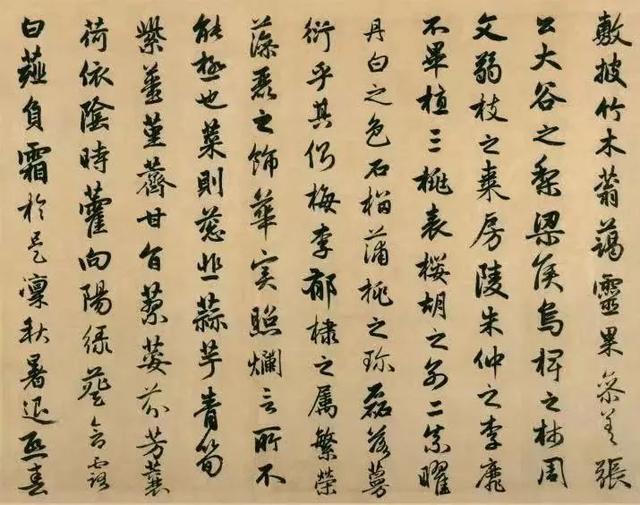 敷披竹木蓊藹靈果參差張
公大谷之梨梁侯烏椑之柿周
文弱枝之棗房陵朱仲之李靡
不畢植三桃表櫻胡之别二柰曜
丹白之色石榴蒲桃之珍磊落蔓
衍乎其側梅李郁棣之属繁榮
藻麗之飾華实照爛言所不
能極也菜則葱韭蒜芋青筍
紫薑堇薺甘旨蓼荽芬芳蘘
荷依陰時藿向陽緑葵含露
白薤負霜於是凜秋暑退熙春